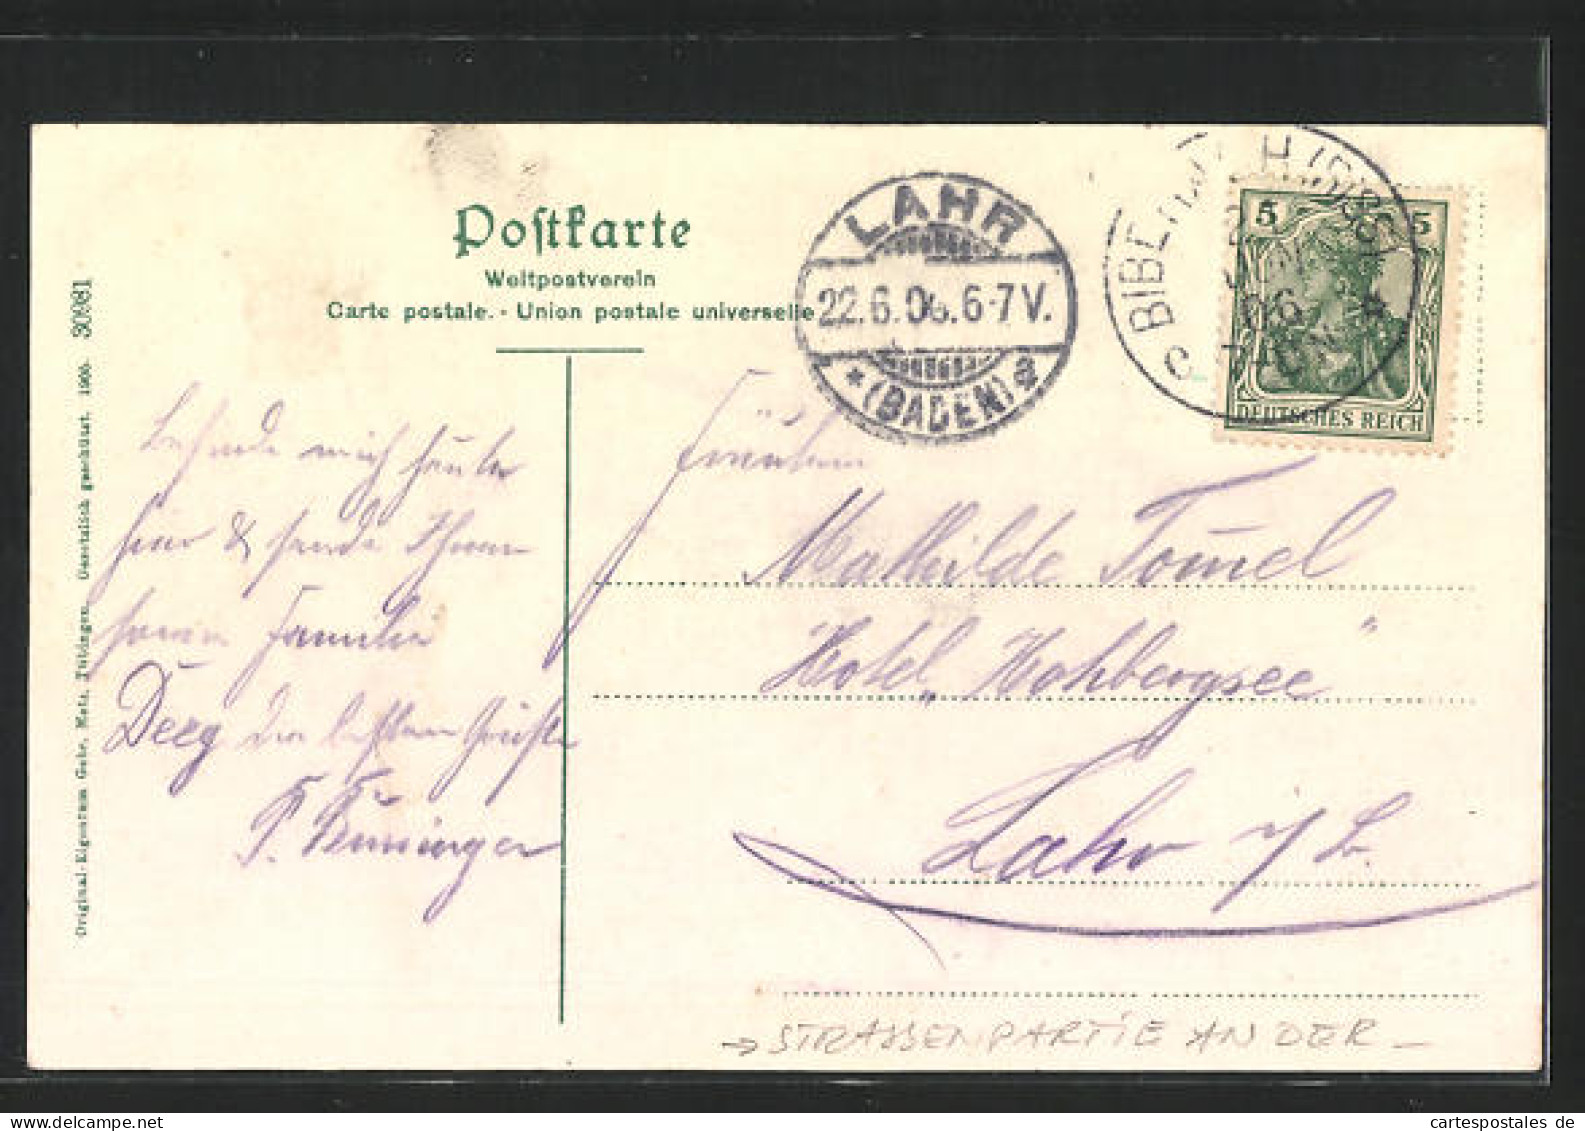 Postkarte
Weltpostverein
Carte postale. - Union postale universelle
LAHR
22.6.06. 6-7 V.
* (BADEN) a
5 5
DEUTSCHES REICH
06
30981
Original-Eigentum Gebr. Metz, Tübingen. Gesetzlich geschützt. 1905.
Befinde mich heute
hier & sende Ihnen
sowie Familie
Deeg die besten Grüße
Fräulein
Mathilde
Hotel „Hohbergsee“
Lahr i/B.
→ STRASSENPARTIE AN DER —
cartespostales de
www.delcampe.net